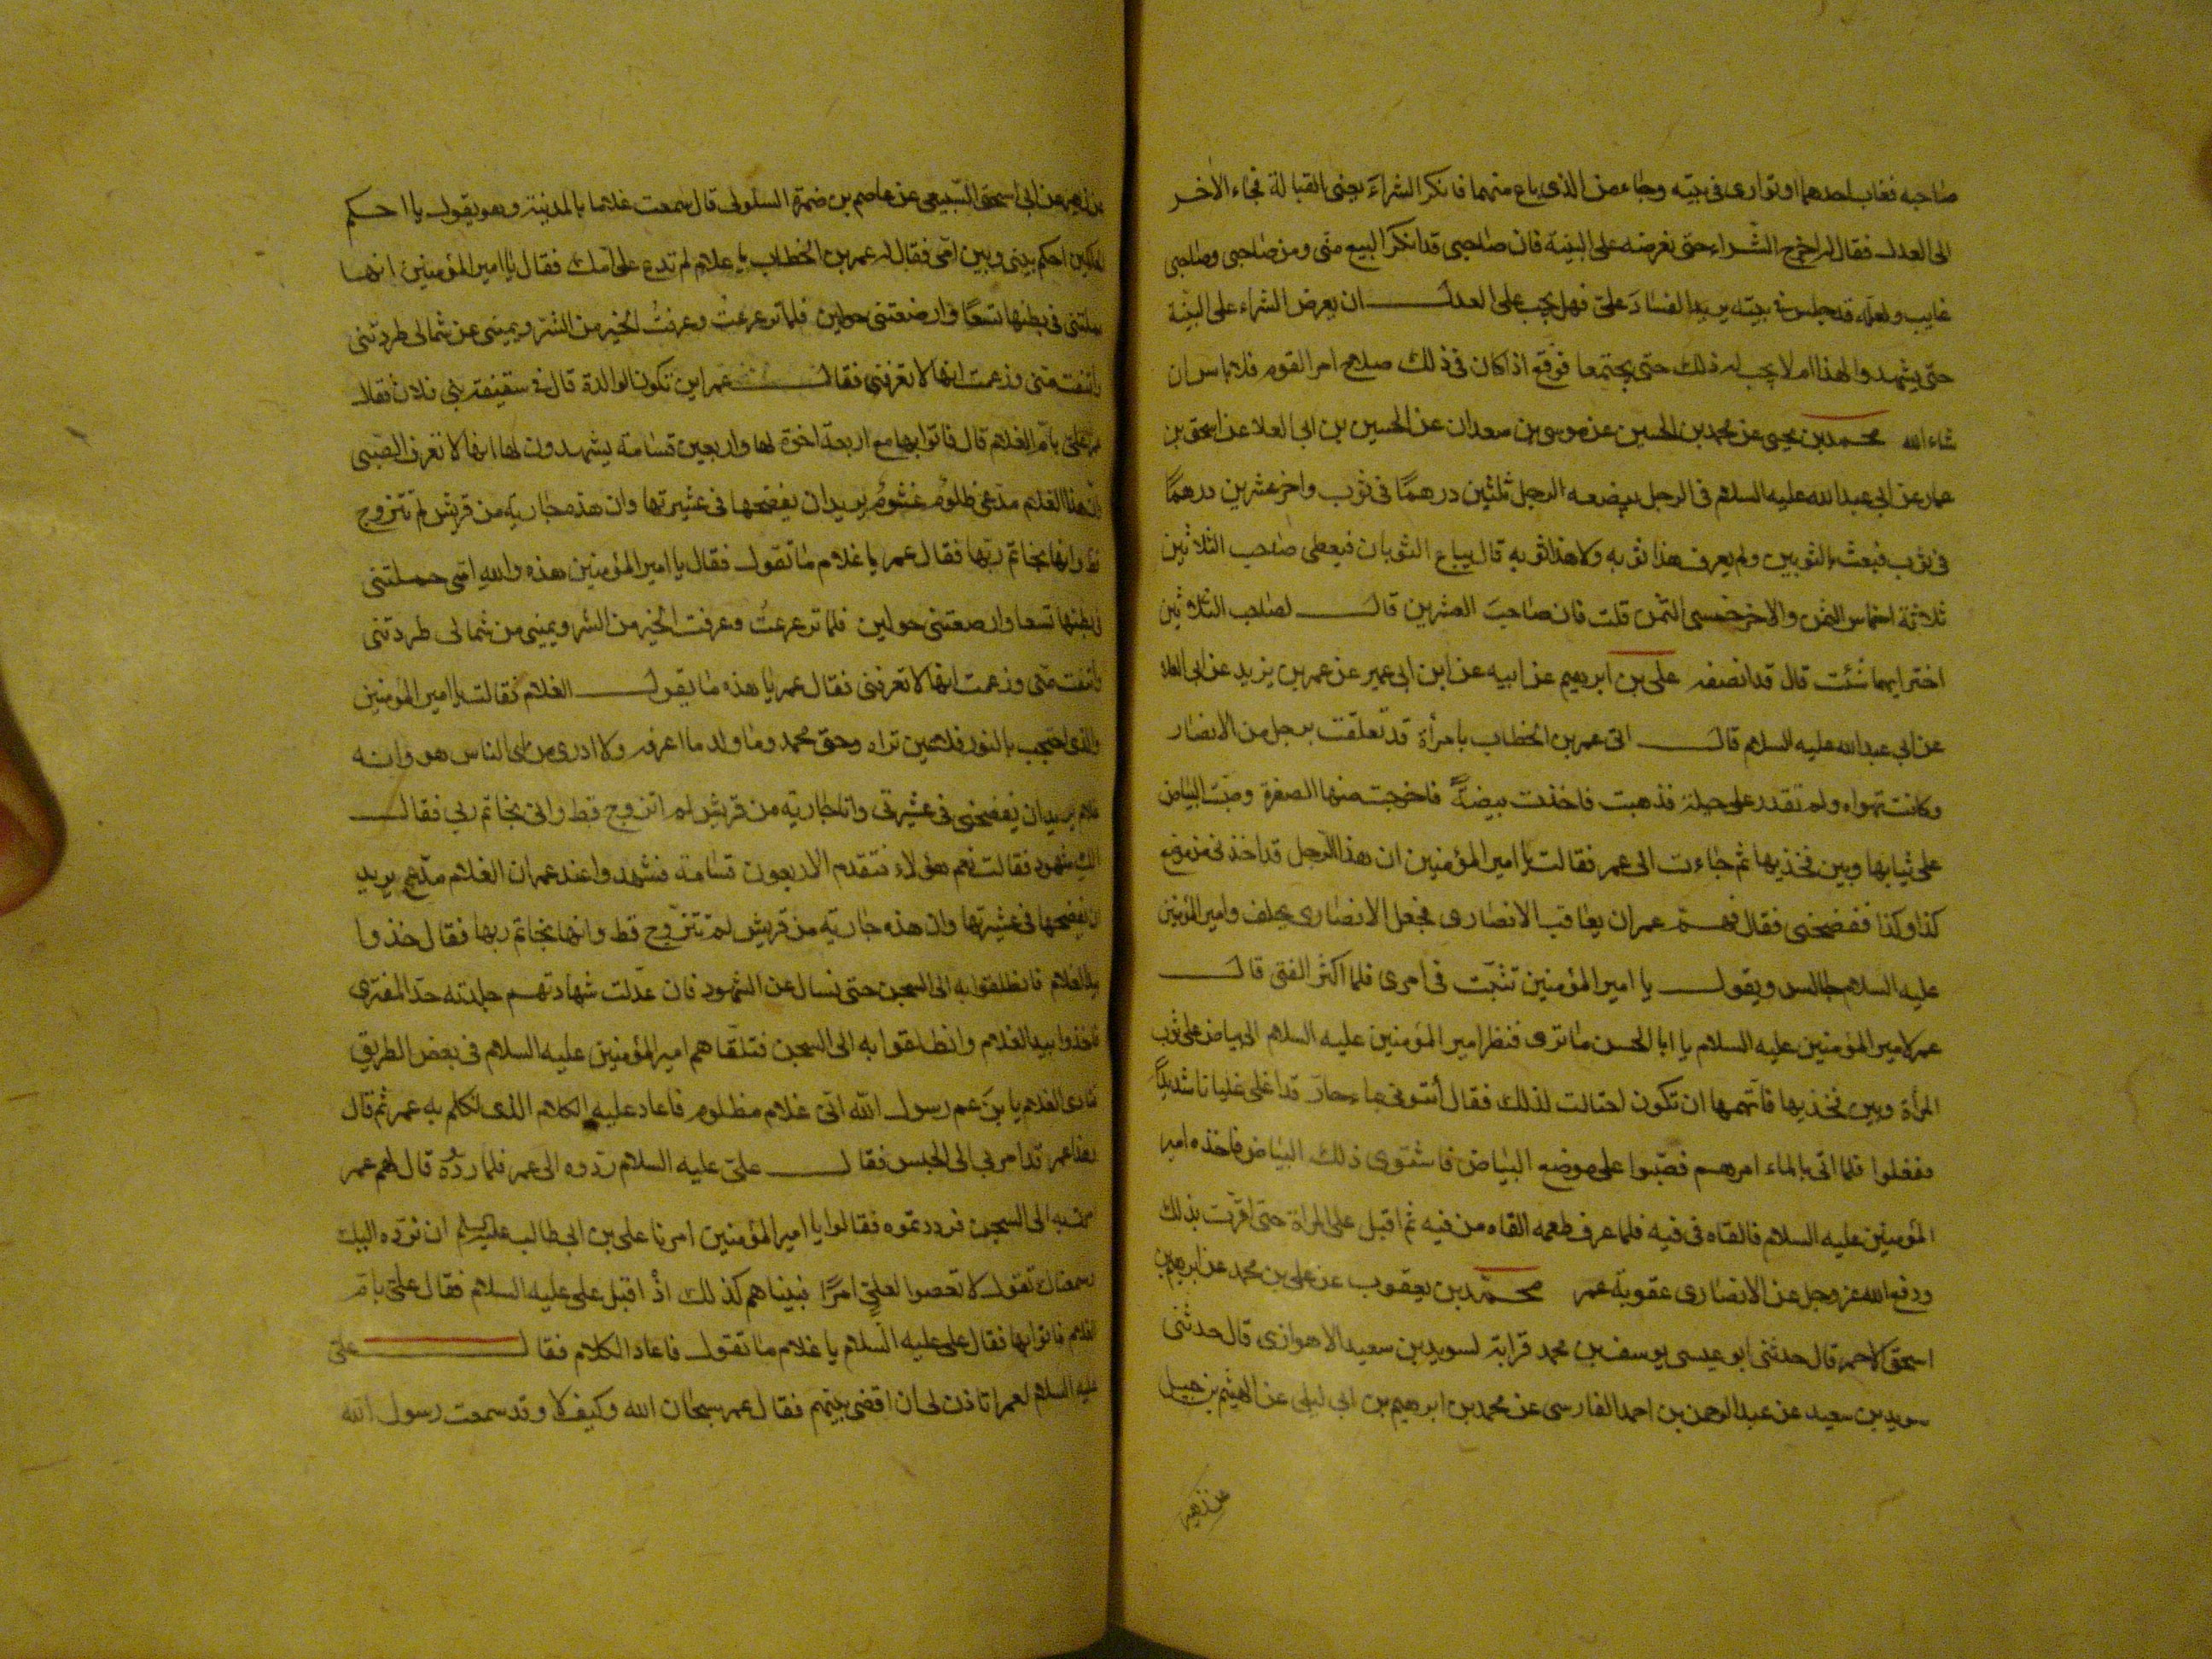 صاحبه فغاب احدهما او توارى فى بيته وجاء من الذى باع منهما فانكر الشراء يعنى القبالة فجاء الاخر
الى العدل فقال له اخرج الشراء حتى نعرضه على البينة فان صاحبى قد انكر البيع منى ومن صاحبى وصاحبى
غايب ولعله قد جلس فى بيته يريد الفساد علىّ فهل يجب على العدل ان يعرض الشراء على البينة
حتى يشهدوا لهذا ام لا يجب له ذلك حتى يجتمعا فوقع اذا كان فى ذلك صلاح امر القوم فلا باس ان
شاء الله محمد بن يحيى عن محمد بن الحسين عن موسى بن سعدان عن الحسين بن ابى العلا عن اسحق بن
عمار عن ابى عبد الله عليه السلام فى الرجل يبضعه الرجل ثلثين درهمًا فى ثوب واخر عشرين درهمًا
فى ثوب فبعث بالثوبين ولم يعرف هذا ثوبه ولا هذا ثوبه قال يباع الثوبان فيعطى صاحب الثلاثين
ثلاثة اخماس الثمن والاخر خمسى الثمن قلت فان صاحب العشرين قال لصاحب الثلاثين
اختر ايهما شئت قال قد انصفه على بن ابرهيم عن ابيه عن ابن ابى عمير عن عمر بن يزيد عن ابى العلا
عن ابى عبد الله عليه السلام قال اتى عمر بن الخطاب بامرأة قد تعلقت برجل من الانصار
وكانت تهواه ولم تقدر على حيلة فذهبت فاخذت بيضةً فاخرجت منها الصفرة وصبّت البياض
على ثيابها وبين فخذيها ثم جاءت الى عمر فقالت يا امير المؤمنين ان هذا الرجل قد اخذنى فى موضع
كذا وكذا ففضحنى فقال فهمّ عمر ان يعاقب الانصارى فجعل الانصارى يحلف وامير المؤمنين
عليه السلام جالس ويقول يا امير المؤمنين تثبّت فى امرى فلما اكثر الفتى قال
عمر لامير المؤمنين عليه السلام يا ابا الحسن ما ترى فنظر امير المؤمنين عليه السلام الى بياض على ثوب
المرأة وبين فخذيها فاتهمها ان تكون احتالت لذلك فقال أئتونى بماء حارّ قد اغلى غليانا شديدًا
ففعلوا فلما اتى بالماء امرهم فصبّوا على موضع البياض فاشتوى ذلك البياض فاخذه امير
المؤمنين عليه السلام فالقاه فى فيه فلما عرف طعمه القاه من فيه ثم اقبل على المراة حتى اقرّت بذلك
ودفع الله عز وجل عن الانصارى عقوبة عمر محمّد بن يعقوب عن على بن محمد عن ابرهيم بن
اسحق الاحمر قال حدثنى ابو عيسى يوسف بن محمد قرابة لسويد بن سعيد الاهوازى قال حدثنى
سويد بن سعيد عن عبد الرحمن بن احمد الفارسى عن محمد بن ابرهيم بن ابى ليلى عن الهيثم بن جميل
عن زهير
عن زهير عن ابى اسحق السّبيعى عن عاصم بن ضمرة السلولى قال سمعت غلاما بالمدينة وهو يقول يا احكم
الحاكمين احكم بينى وبين امّى فقال له عمر بن الخطاب يا غلام لم تدع على امّك فقال يا امير المؤمنين انها
حملتنى فى بطنها تسعًا وارضعتنى حولين فلما ترعرعتُ وعرفتُ الخير من الشر ويمينى عن شمالى طردتنى
وانتفت منى وزعمت انها لا تعرفنى فقال عمر اين تكون الوالدة قال فى سقيفة بنى فلان فقال
عمر علىّ بامّ الغلام قال فاتوا بها مع اربعة اخوة لها واربعين قسامة يشهدون لها انها لا تعرف الصّبى
وان هذا الغلام مدّعى ظلومٌ غشومٌ يريد ان يفضحها فى عشيرتها وان هذه جارية من قريش لم تتزوج
قط وانها بخاتم ربّها فقال عمر يا غلام ما تقول فقال يا امير المؤمنين هذه والله امّى حملتنى
فى بطنها تسعا وارضعتنى حولين فلما ترعرعتُ وعرفت الخير من الشر ويمينى من شمالى طردتنى
وانتفت منّى وزعمت انها لا تعرفنى فقال عمر يا هذه ما يقول الغلام فقالت يا امير المؤمنين
والذى احتجب بالنور فلا عين تراه وحق محمد وما ولد ما اعرفه ولا ادرى من اى الناس هو وانه
غلام يريد ان يفضحنى فى عشيرتى وانا جارية من قريش لم اتزوج قط وانى بخاتم ربى فقال
الك شهود فقالت نعم هؤلاء فتقدم الاربعون قسامة فشهدوا عند عمر ان الغلام مدّعى يريد
ان يفضحها فى عشيرتها وان هذه جارية من قريش لم تتزوج قط وانها بخاتم ربها فقال خذوا
بيد الغلام فانطلقوا به الى السجن حتى نسال عن الشهود فان عدّلت شهادتهم جلدته حدّ المفترى
فاخذوا بيد الغلام وانطلقوا به الى السجن فتلقّاهم امير المؤمنين عليه السلام فى بعض الطريق
فنادى الغلام يا بن عم رسول الله انى غلام مظلوم فاعاد عليه الكلام الذى تكلم به عمر ثم قال
هذا عمر قد امر بى الى الحبس فقال علىّ عليه السلام ردّوه الى عمر فلما ردّوه قال لهم عمر
امرت به الى السجن فرددتموه فقالوا يا امير المؤمنين امرنا على بن ابى طالب عليه السلم ان نردّه اليك
وسمعناك تقول لا تعصوا لعلىّ امرًا فبيناهم كذلك اذ اقبل على عليه السلام فقال علىّ بامّ
الغلام فاتوا بها فقال على عليه السلام يا غلام ما تقول فاعاد الكلام فقال علىّ
عليه السلام لعمر اتاذن لى ان اقضى بينهم فقال عمر سبحان الله وكيف لا وقد سمعت رسول الله